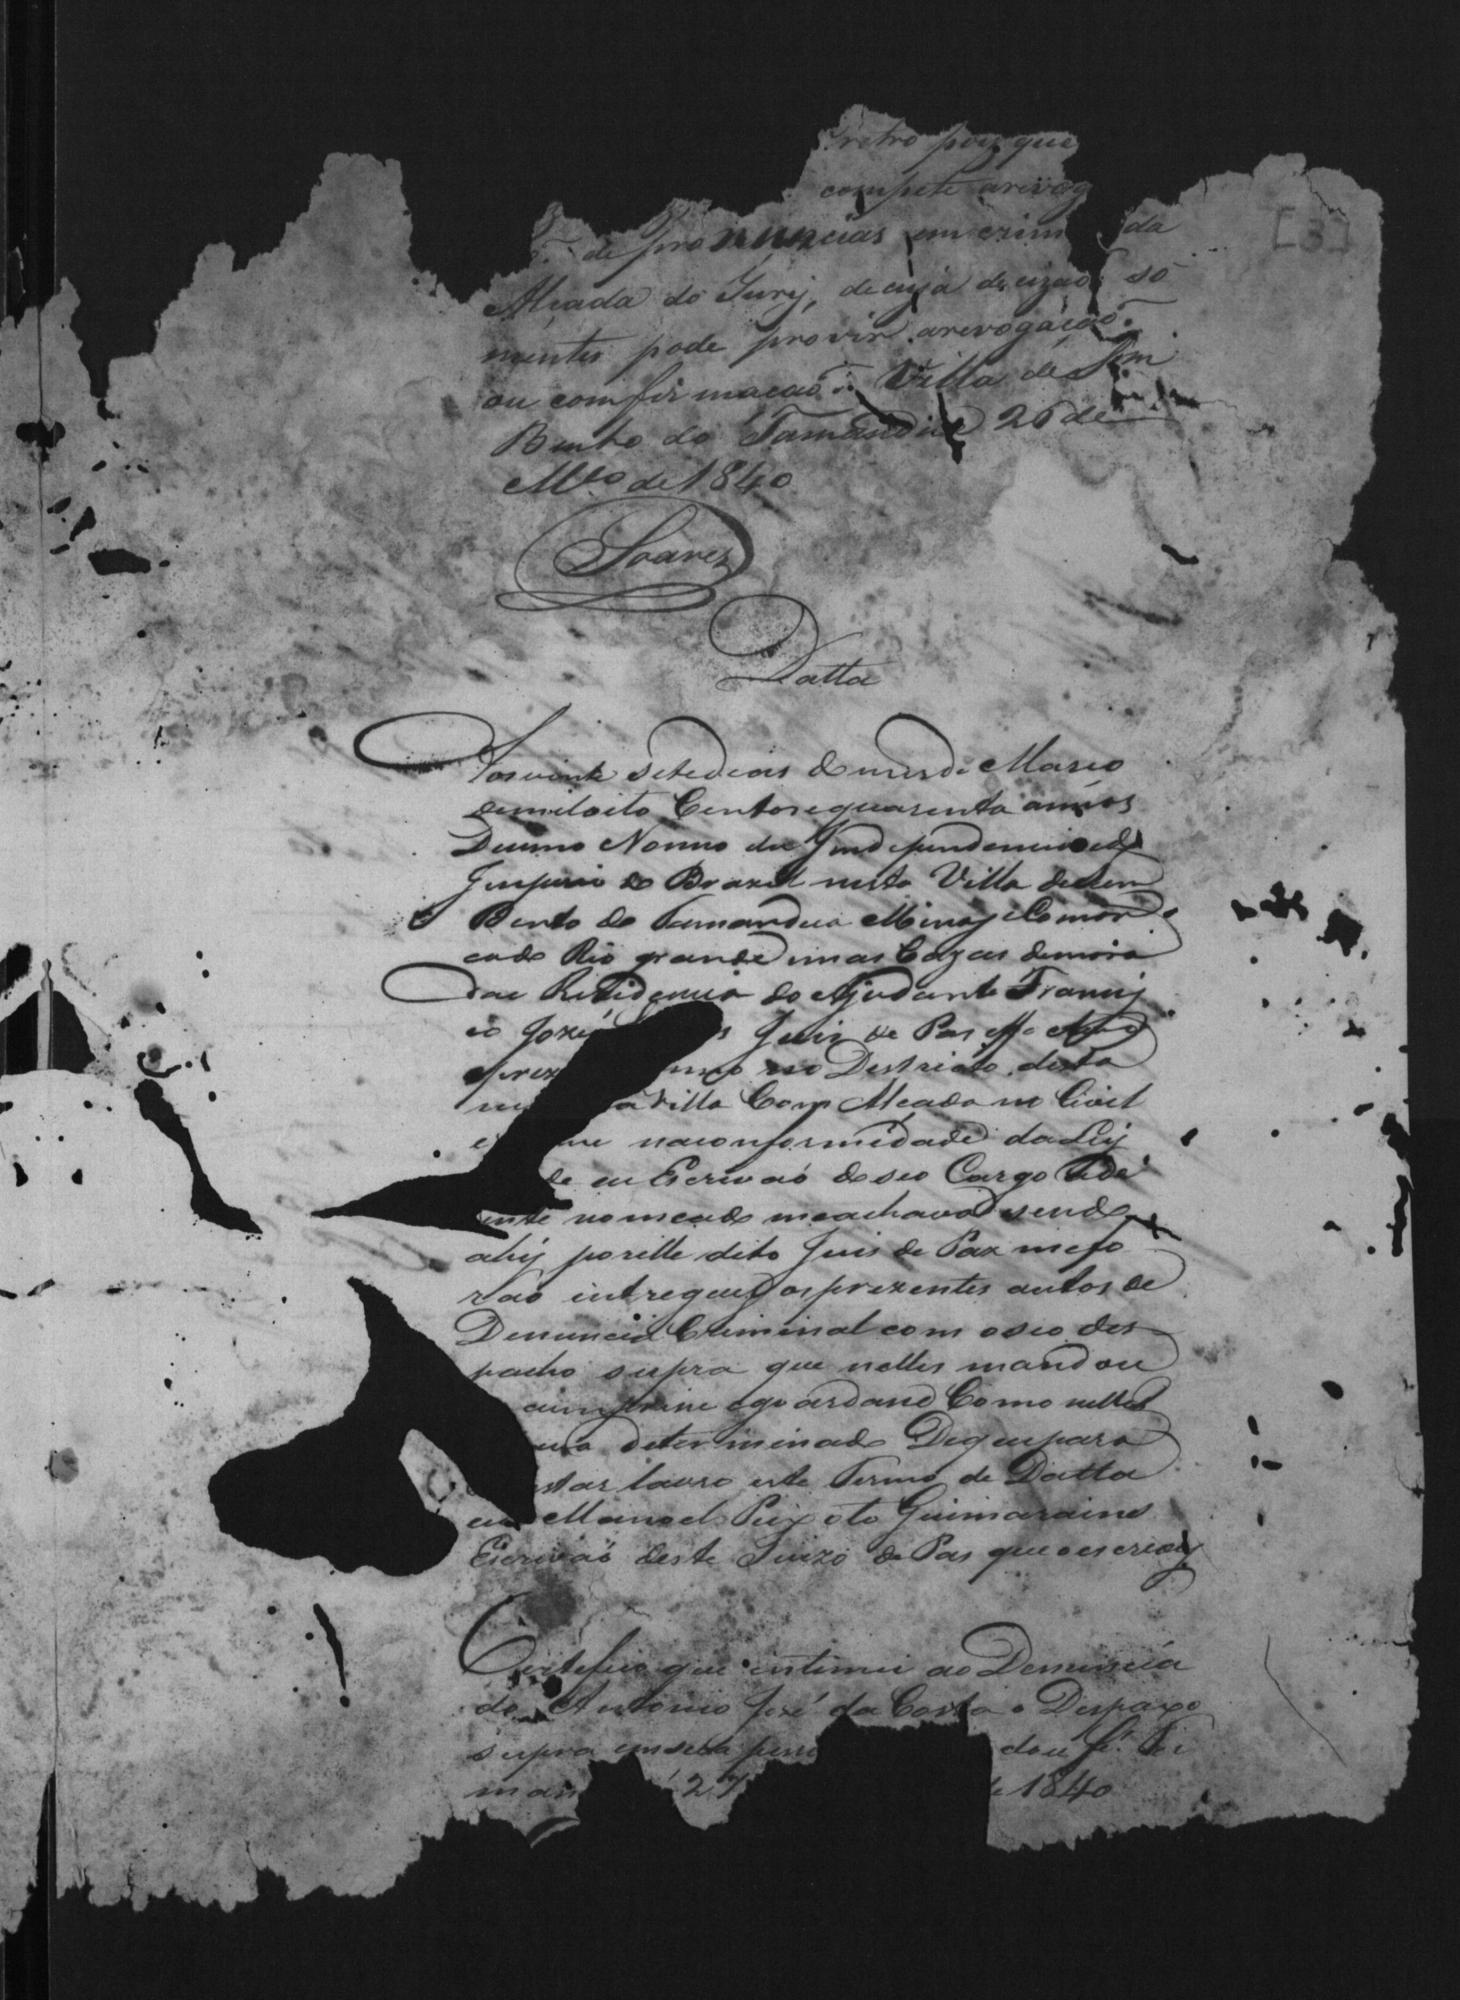 retro poiz que
compete arevog
de pronuncias em crim da
Alcada do Jury, decuja decizaõ só
mentes pode provir arevogaçaõ
ou comfirmacaõ. Villa de Sm
Bento do Tamandua 26 de
Mço de 1840
Soares
Datta
Aos vinte setedias do mes de Março
demiloito Centosequarenta annos
Decimo Nonno da Independencia edo
Imperio do Brazil nesta Villa de Sam
Bento do Tamandua Minas e Comar
cado Rio grande em as Cazas demora
da e Rezidencia do Ajudante Francis
co Jozé Juis de Pas
no Destricto desta
Villa Com Alcada no Civel
e naconformidade da Ley
de eu Escrivaõ de seo Cargo
nomeado meachava e sendo
ahy porelle dito Juis de Paz mefo
raõ intregues os prezentes autos de
Denuncia Criminal com oseo des
pacho supra que nelles mandou
cumprisse eguardase Como nelles
determinado Deque para
lavro este Termo de Datta
eu Manoel Peixoto Guimaraines
Escrivaõ deste Juizo de Pas que o escrevy
Certefico que intimei ao Denuncia
do Antonio Jozé da Costa o Despaxo
supra emsua pess dou fé. Ta
man 27 de 1840
[3]